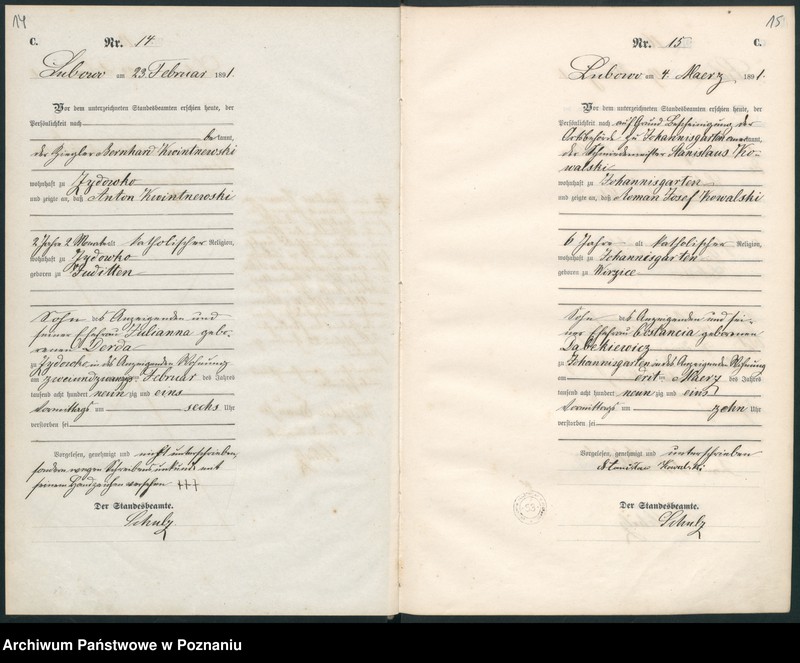 14
C. Nr. 14
Lubowo am 23. Februar 1891.
Vor dem unterzeichneten Standesbeamten erschien heute, der
Persönlichkeit nach
bekannt,
der Ziegler Bernhard Kwintnewski
wohnhaft zu Zydowko
und zeigte an, daß Anton Kwintnewski
2 Jahre 2 Monate alt katholischer Religion,
wohnhaft zu Zydowko
geboren zu Juditten
Sohn des Anzeigenden und
seiner Ehefrau Julianna gebo-
renen Derda
zu Zydowko, in des Anzeigenden Wohnung
am zweiundzwanzigsten Februar des Jahres
tausend acht hundert neunzig und eins
Vormittags um sechs Uhr
verstorben sei
Vorgelesen, genehmigt und nicht unterschrieben,
sondern wegen Schreibensunkunde mit
seinem Handzeichen versehen +++
Der Standesbeamte.
Schulz
15
Nr. 15 C.
Lubowo am 4. Maerz 1891.
Vor dem unterzeichneten Standesbeamten erschien heute, der
Persönlichkeit nach auf Grund Bescheinigung der
Ortsbehörde zu Johannisgarten anerkannt,
der Schmiedemeister Stanislaus Ko-
walski
wohnhaft zu Johannisgarten
und zeigte an, daß Roman Josef Kowalski
6 Jahre alt katholischer Religion,
wohnhaft zu Johannisgarten
geboren zu
Sohn des Anzeigenden und sei-
ner Ehefrau Constancia geborenen
Dabekiewicz
zu Johannisgarten in des Anzeigenden Wohnung
am dritten Maerz des Jahres
tausend acht hundert neunzig und eins
Vormittags um zehn Uhr
verstorben sei
Vorgelesen, genehmigt und unterschrieben
Stanislaw Kowalski
Der Standesbeamte.
Schulz
Archiwum Państwowe w Poznaniu